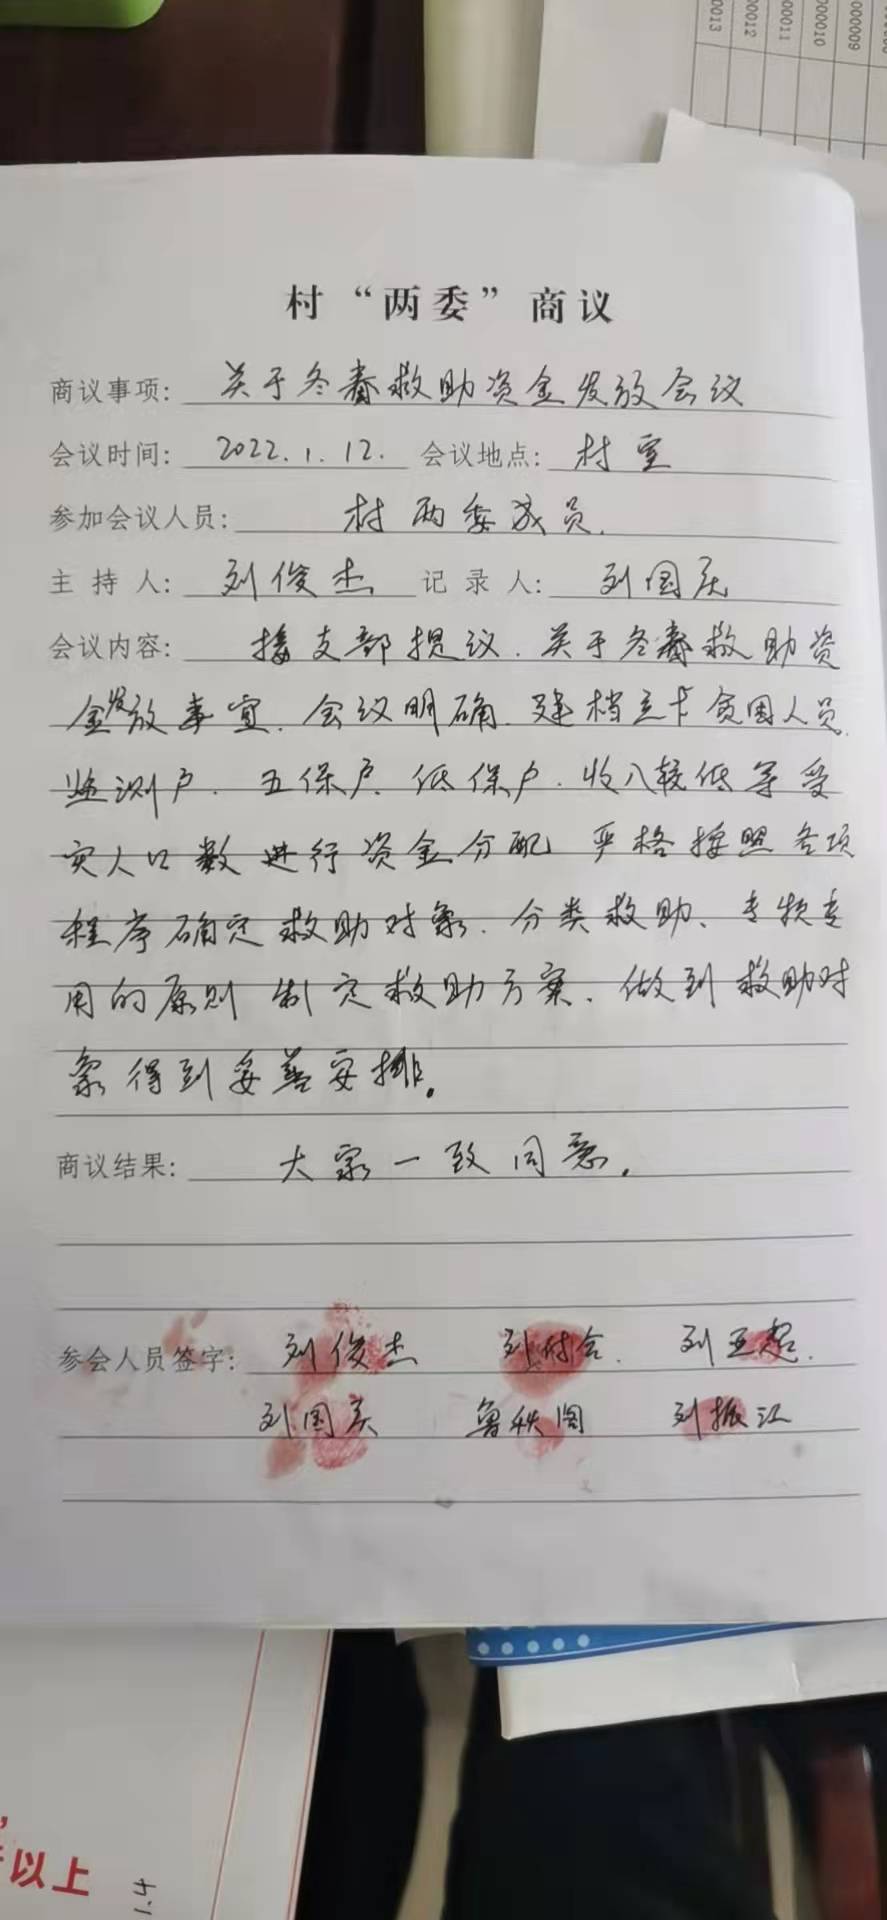 000013
000012
000011
000010
000009
村“两委”商议
商议事项： 关于冬春救助资金发放会议
会议时间： 2022.1.12. 会议地点： 村室
参加会议人员： 村两委成员.
主 持 人： 刘俊杰 记 录 人： 刘国庆
会议内容： 按支部提议.关于冬春救助资
金发放事宜.会议明确.建档立卡贫困人员.
监测户.五保户.低保户.收入较低等受
灾人口数进行资金分配 严格按照各项
程序确定救助对象.分类救助、专物专
用的原则 制定救助方案.做到救助对
象得到妥善安排。
商议结果： 大家一致同意.
参会人员签字： 刘俊杰 刘付合. 刘亚超.
刘国庆 鲁秋阁 刘振江
以上